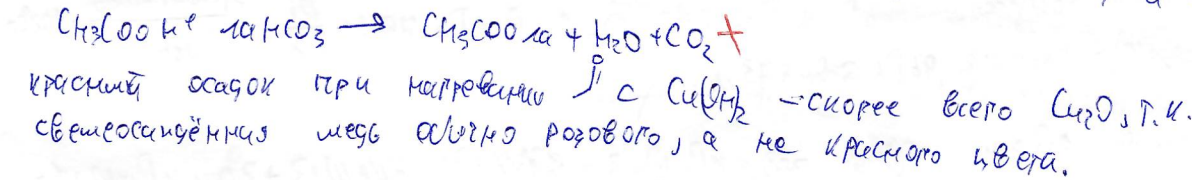 CH₃COOH + NaHCO₃ → CH₃COONa + H₂O + CO₂ +
красный осадок при нагревании с Cu(OH)₂ – скорее всего Cu₂O, т.к.
свежеосаждённая медь обычно розового, а не красного цвета.